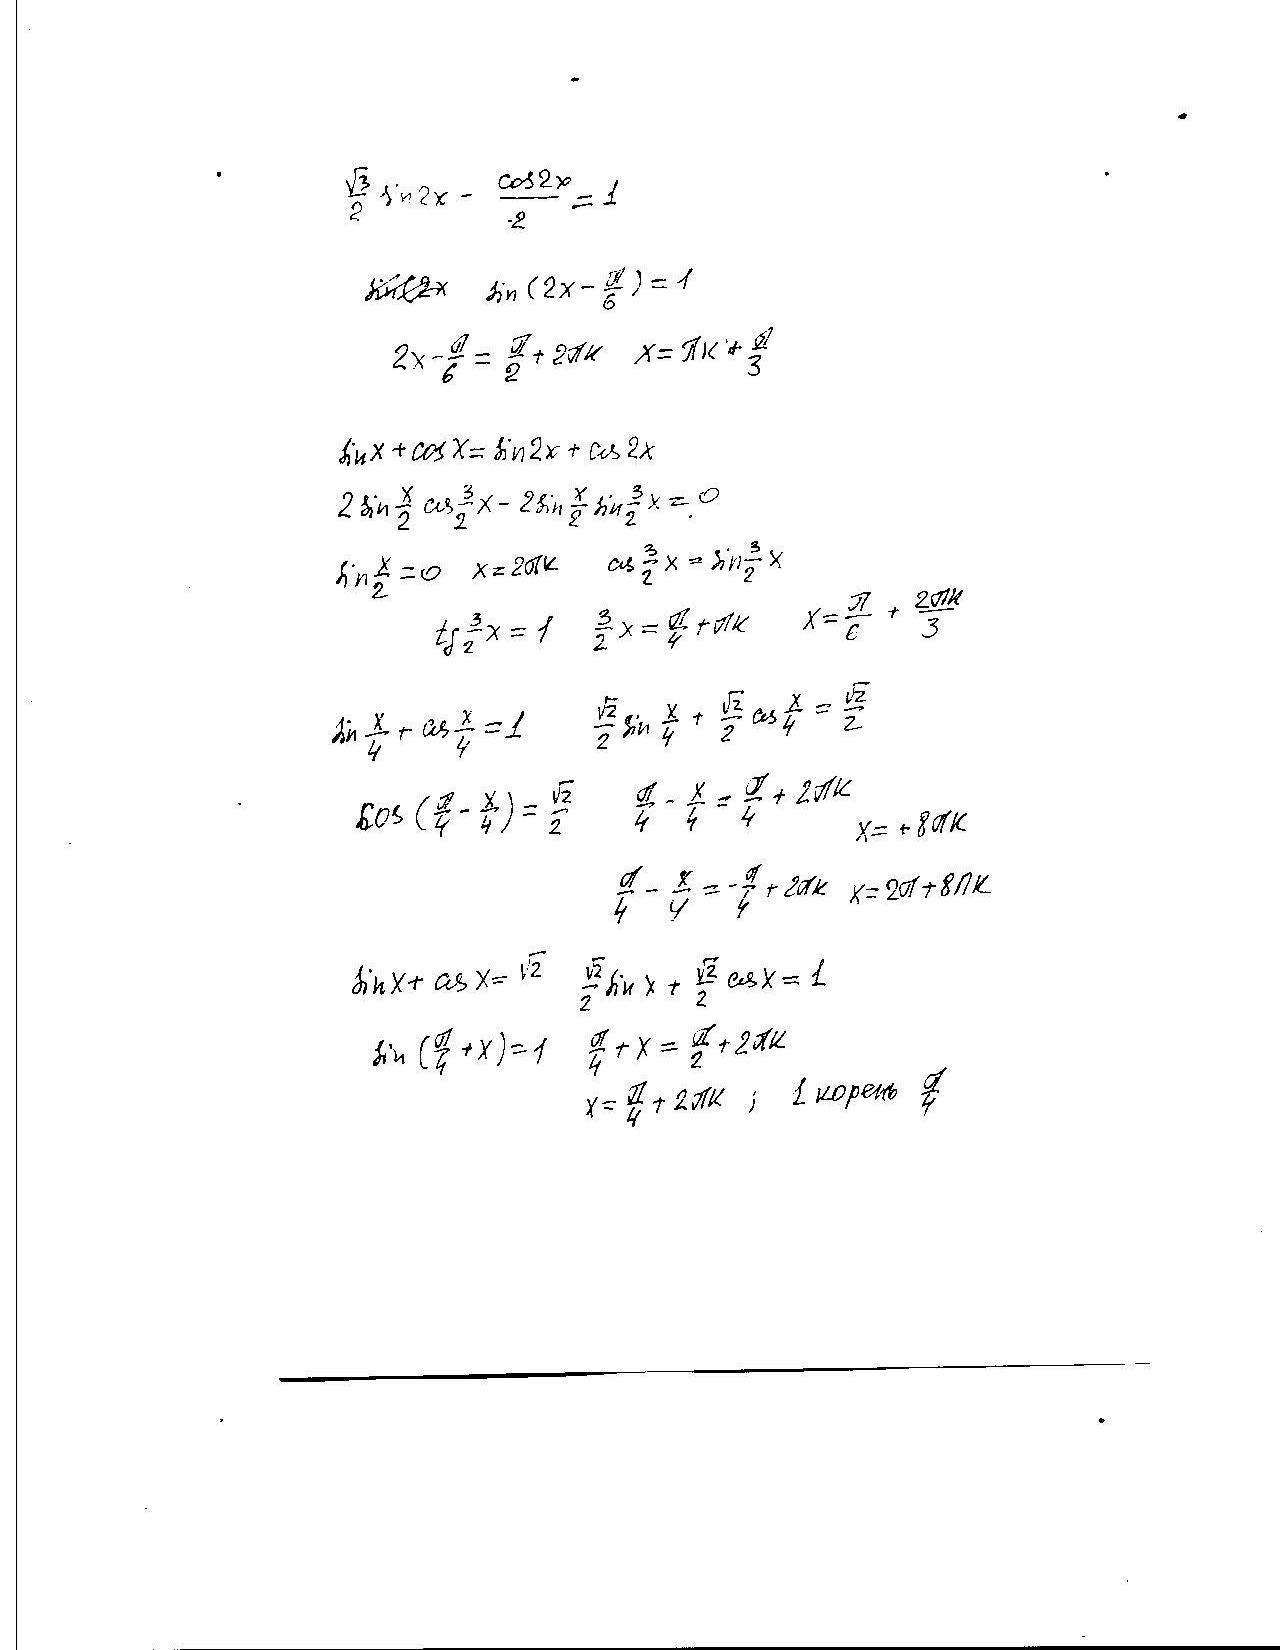 √3/2 sin2x - cos2x/2 = 1
sin(2x - π/6) = 1
2x - π/6 = π/2 + 2πk   x = πk + π/3
sinx + cosx = sin2x + cos2x
2sin x/2 cos 3/2 x - 2sin x/2 sin 3/2 x = 0
sin x/2 = 0   x = 2πk   cos 3/2 x = sin 3/2 x
tg 3/2 x = 1   3/2 x = π/4 + πk   x = π/6 + 2πk/3
sin x/4 + cos x/4 = 1   √2/2 sin x/4 + √2/2 cos x/4 = √2/2
cos(π/4 - x/4) = √2/2   π/4 - x/4 = π/4 + 2πk
x = +8πk
π/4 - x/4 = -π/4 + 2πk   x = 2π + 8πk
sinx + cosx = √2   √2/2 sinx + √2/2 cosx = 1
sin(π/4 + x) = 1   π/4 + x = π/2 + 2πk
x = π/4 + 2πk ; 1 корень π/4